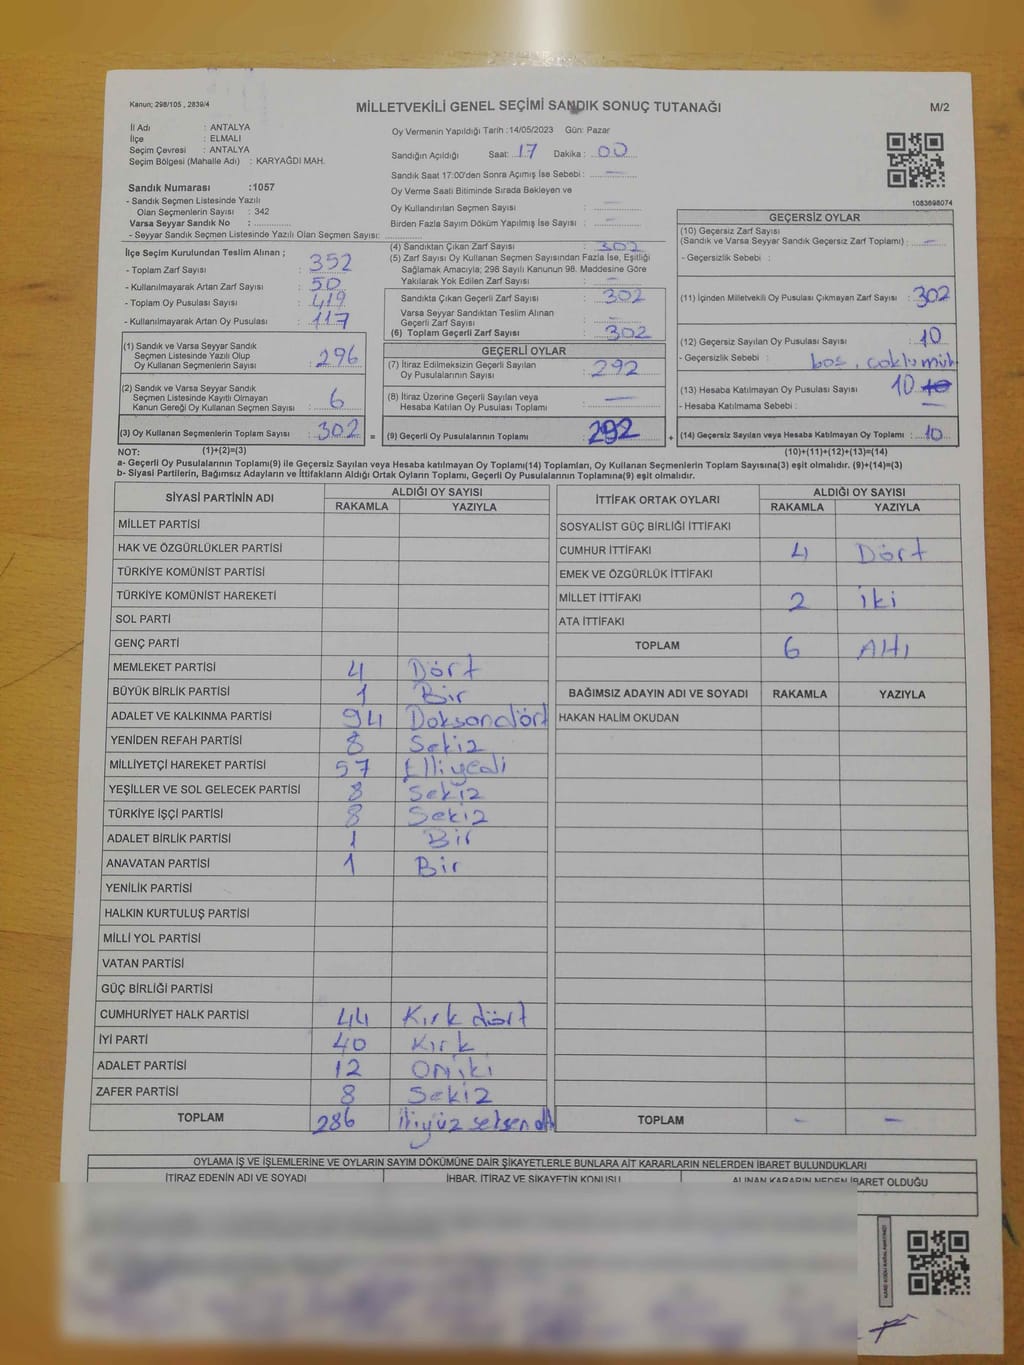 Kanun; 298/105 , 2839/4
MİLLETVEKİLİ GENEL SEÇİMİ SANDIK SONUÇ TUTANAĞI
M/2
İl Adı : ANTALYA
İlçe : ELMALI
Seçim Çevresi : ANTALYA
Seçim Bölgesi (Mahalle Adı) : KARYAĞDI MAH.
Sandık Numarası :1057
- Sandık Seçmen Listesinde Yazılı
Olan Seçmenlerin Sayısı : 342
Varsa Seyyar Sandık No :
- Seyyar Sandık Seçmen Listesinde Yazılı Olan Seçmen Sayısı:
Oy Vermenin Yapıldığı Tarih :14/05/2023 Gün: Pazar
Sandığın Açıldığı Saat: 17 Dakika : 00
Sandık Saat 17:00'den Sonra Açımış İse Sebebi : —
Oy Verme Saati Bitiminde Sırada Bekleyen ve
Oy Kullandırılan Seçmen Sayısı : —
Birden Fazla Sayım Döküm Yapılmış İse Sayısı : —
1083698074
İlçe Seçim Kurulundan Teslim Alınan ;
- Toplam Zarf Sayısı : 352
- Kullanılmayarak Artan Zarf Sayısı : 50
- Toplam Oy Pusulası Sayısı : 419
- Kullanılmayarak Artan Oy Pusulası : 117
(1) Sandık ve Varsa Seyyar Sandık
Seçmen Listesinde Yazılı Olup
Oy Kullanan Seçmenlerin Sayısı : 296
(2) Sandık ve Varsa Seyyar Sandık
Seçmen Listesinde Kayıtlı Olmayan
Kanun Gereği Oy Kullanan Seçmen Sayısı : 6
(3) Oy Kullanan Seçmenlerin Toplam Sayısı : 302
(4) Sandıktan Çıkan Zarf Sayısı : 302
(5) Zarf Sayısı Oy Kullanan Seçmen Sayısından Fazla İse, Eşitliği
Sağlamak Amacıyla; 298 Sayılı Kanunun 98. Maddesine Göre
Yakılarak Yok Edilen Zarf Sayısı : —
Sandıkta Çıkan Geçerli Zarf Sayısı : 302
Varsa Seyyar Sandıktan Teslim Alınan
Geçerli Zarf Sayısı : —
(6) Toplam Geçerli Zarf Sayısı : 302
GEÇERLİ OYLAR
(7) İtiraz Edilmeksizin Geçerli Sayılan
Oy Pusulasının Sayısı : 292
(8) İtiraz Üzerine Geçerli Sayılan veya
Hesaba Katılan Oy Pusulası Toplamı : —
= (9) Geçerli Oy Pusulalarının Toplamı : 292
GEÇERSİZ OYLAR
(10) Geçersiz Zarf Sayısı
(Sandık ve Varsa Seyyar Sandık Geçersiz Zarf Toplamı) : —
- Geçersizlik Sebebi :
(11) İçinden Milletvekili Oy Pusulası Çıkmayan Zarf Sayısı : 302
(12) Geçersiz Sayılan Oy Pusulası Sayısı : 10
- Geçersizlik Sebebi : boş, çoklu müh
(13) Hesaba Katılmayan Oy Pusulası Sayısı 10 10
- Hesaba Katılmama Sebebi : —
+ (14) Geçersiz Sayılan veya Hesaba Katılmayan Oy Toplamı : 10
NOT: (1)+(2)=(3) (10)+(11)+(12)+(13)=(14)
a- Geçerli Oy Pusulalarının Toplamı(9) ile Geçersiz Sayılan veya Hesaba katılmayan Oy Toplamı(14) Toplamları, Oy Kullanan Seçmenlerin Toplam Sayısına(3) eşit olmalıdır. (9)+(14)=(3)
b- Siyasi Partilerin, Bağımsız Adayların ve İttifakların Aldığı Ortak Oyların Toplamı, Geçerli Oy Pusulalarının Toplamına(9) eşit olmalıdır.
SİYASİ PARTİNİN ADI ALDIĞI OY SAYISI
RAKAMLA YAZIYLA
MİLLET PARTİSİ
HAK VE ÖZGÜRLÜKLER PARTİSİ
TÜRKİYE KOMÜNİST PARTİSİ
TÜRKİYE KOMÜNİST HAREKETİ
SOL PARTİ
GENÇ PARTİ
MEMLEKET PARTİSİ 4 Dört
BÜYÜK BİRLİK PARTİSİ 1 Bir
ADALET VE KALKINMA PARTİSİ 94 Doksandört
YENİDEN REFAH PARTİSİ 8 Sekiz
MİLLİYETÇİ HAREKET PARTİSİ 57 Elliyedi
YEŞİLLER VE SOL GELECEK PARTİSİ 8 Sekiz
TÜRKİYE İŞÇİ PARTİSİ 8 Sekiz
ADALET BİRLİK PARTİSİ 1 Bir
ANAVATAN PARTİSİ 1 Bir
YENİLİK PARTİSİ
HALKIN KURTULUŞ PARTİSİ
MİLLİ YOL PARTİSİ
VATAN PARTİSİ
GÜÇ BİRLİĞİ PARTİSİ
CUMHURİYET HALK PARTİSİ 44 Kırk dört
İYİ PARTİ 40 Kırk
ADALET PARTİSİ 12 Oniki
ZAFER PARTİSİ 8 Sekiz
TOPLAM 286 ikiyüz seksen altı
İTTİFAK ORTAK OYLARI ALDIĞI OY SAYISI
RAKAMLA YAZIYLA
SOSYALİST GÜÇ BİRLİĞİ İTTİFAKI
CUMHUR İTTİFAKI 4 Dört
EMEK VE ÖZGÜRLÜK İTTİFAKI
MİLLET İTTİFAKI 2 iki
ATA İTTİFAKI
TOPLAM 6 Altı
BAĞIMSIZ ADAYIN ADI VE SOYADI RAKAMLA YAZIYLA
HAKAN HALİM OKUDAN
TOPLAM - -
OYLAMA İŞ VE İŞLEMLERİNE VE OYLARIN SAYIM DÖKÜMÜNE DAİR ŞİKAYETLERLE BUNLARA AİT KARARLARIN NELERDEN İBARET BULUNDUKLARI
İTİRAZ EDENİN ADI VE SOYADI İHBAR, İTİRAZ VE ŞİKAYETİN KONUSU ALINAN KARARIN NEDEN İBARET OLDUĞU